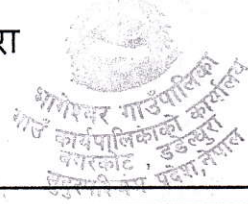 रा
भागेश्वर गाउँपालिका
गाउँ कार्यपालिकाको कार्यालय
बगरकोट, डडेल्धुरा
सुदूरपश्चिम प्रदेश, नेपाल